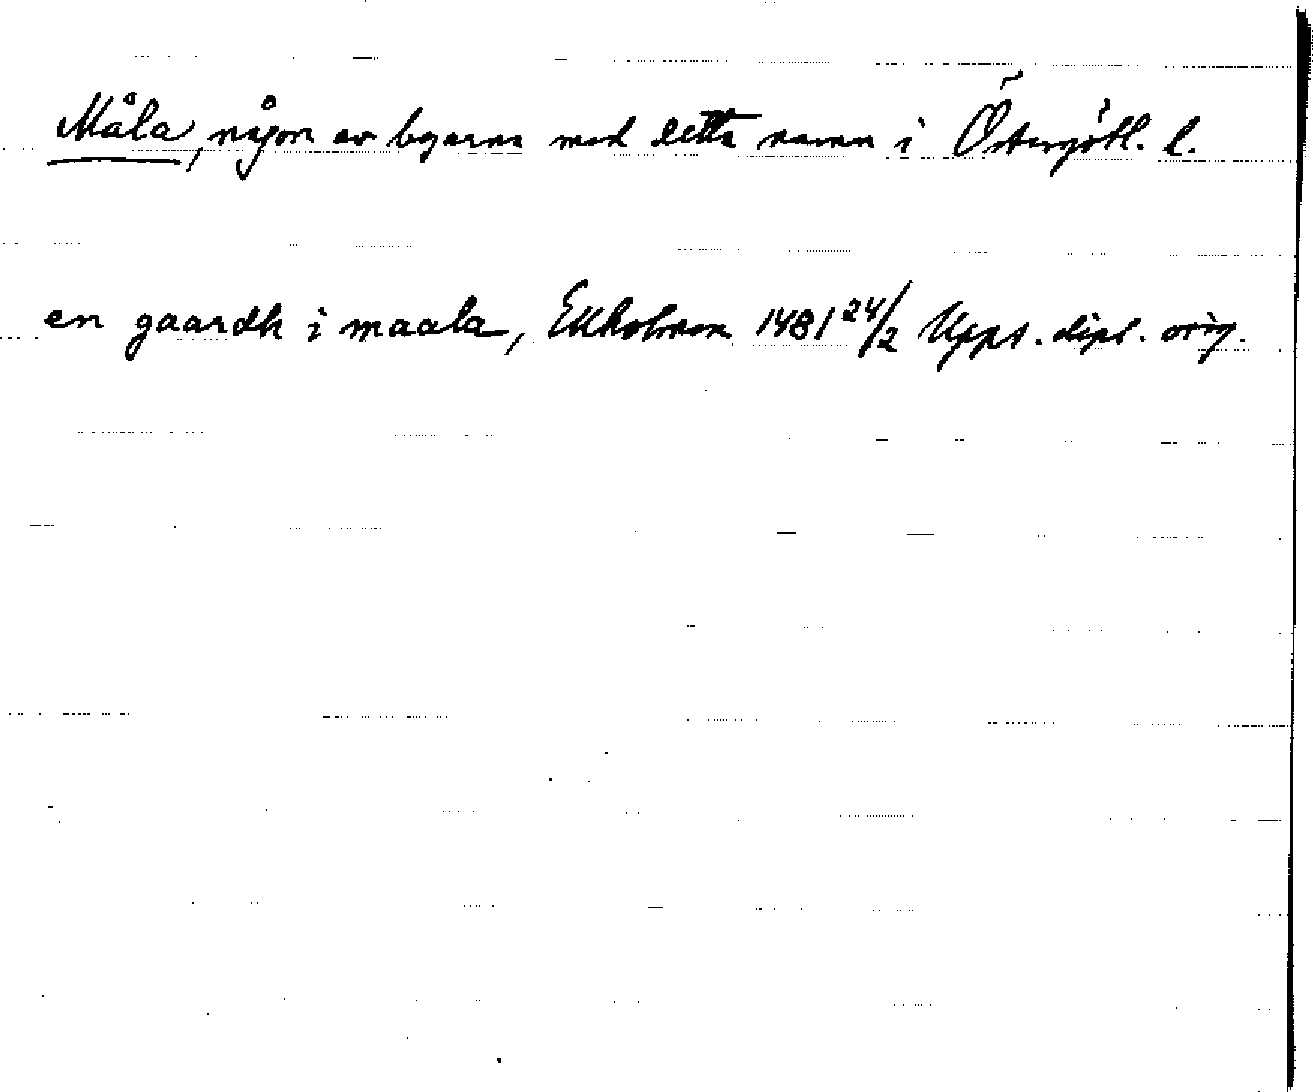 Måla, någon av byarna med detta namn i Östergötl. l.
en gaardh i maala, Ekholmen 1481 24/2 Upps. dipl. orig.